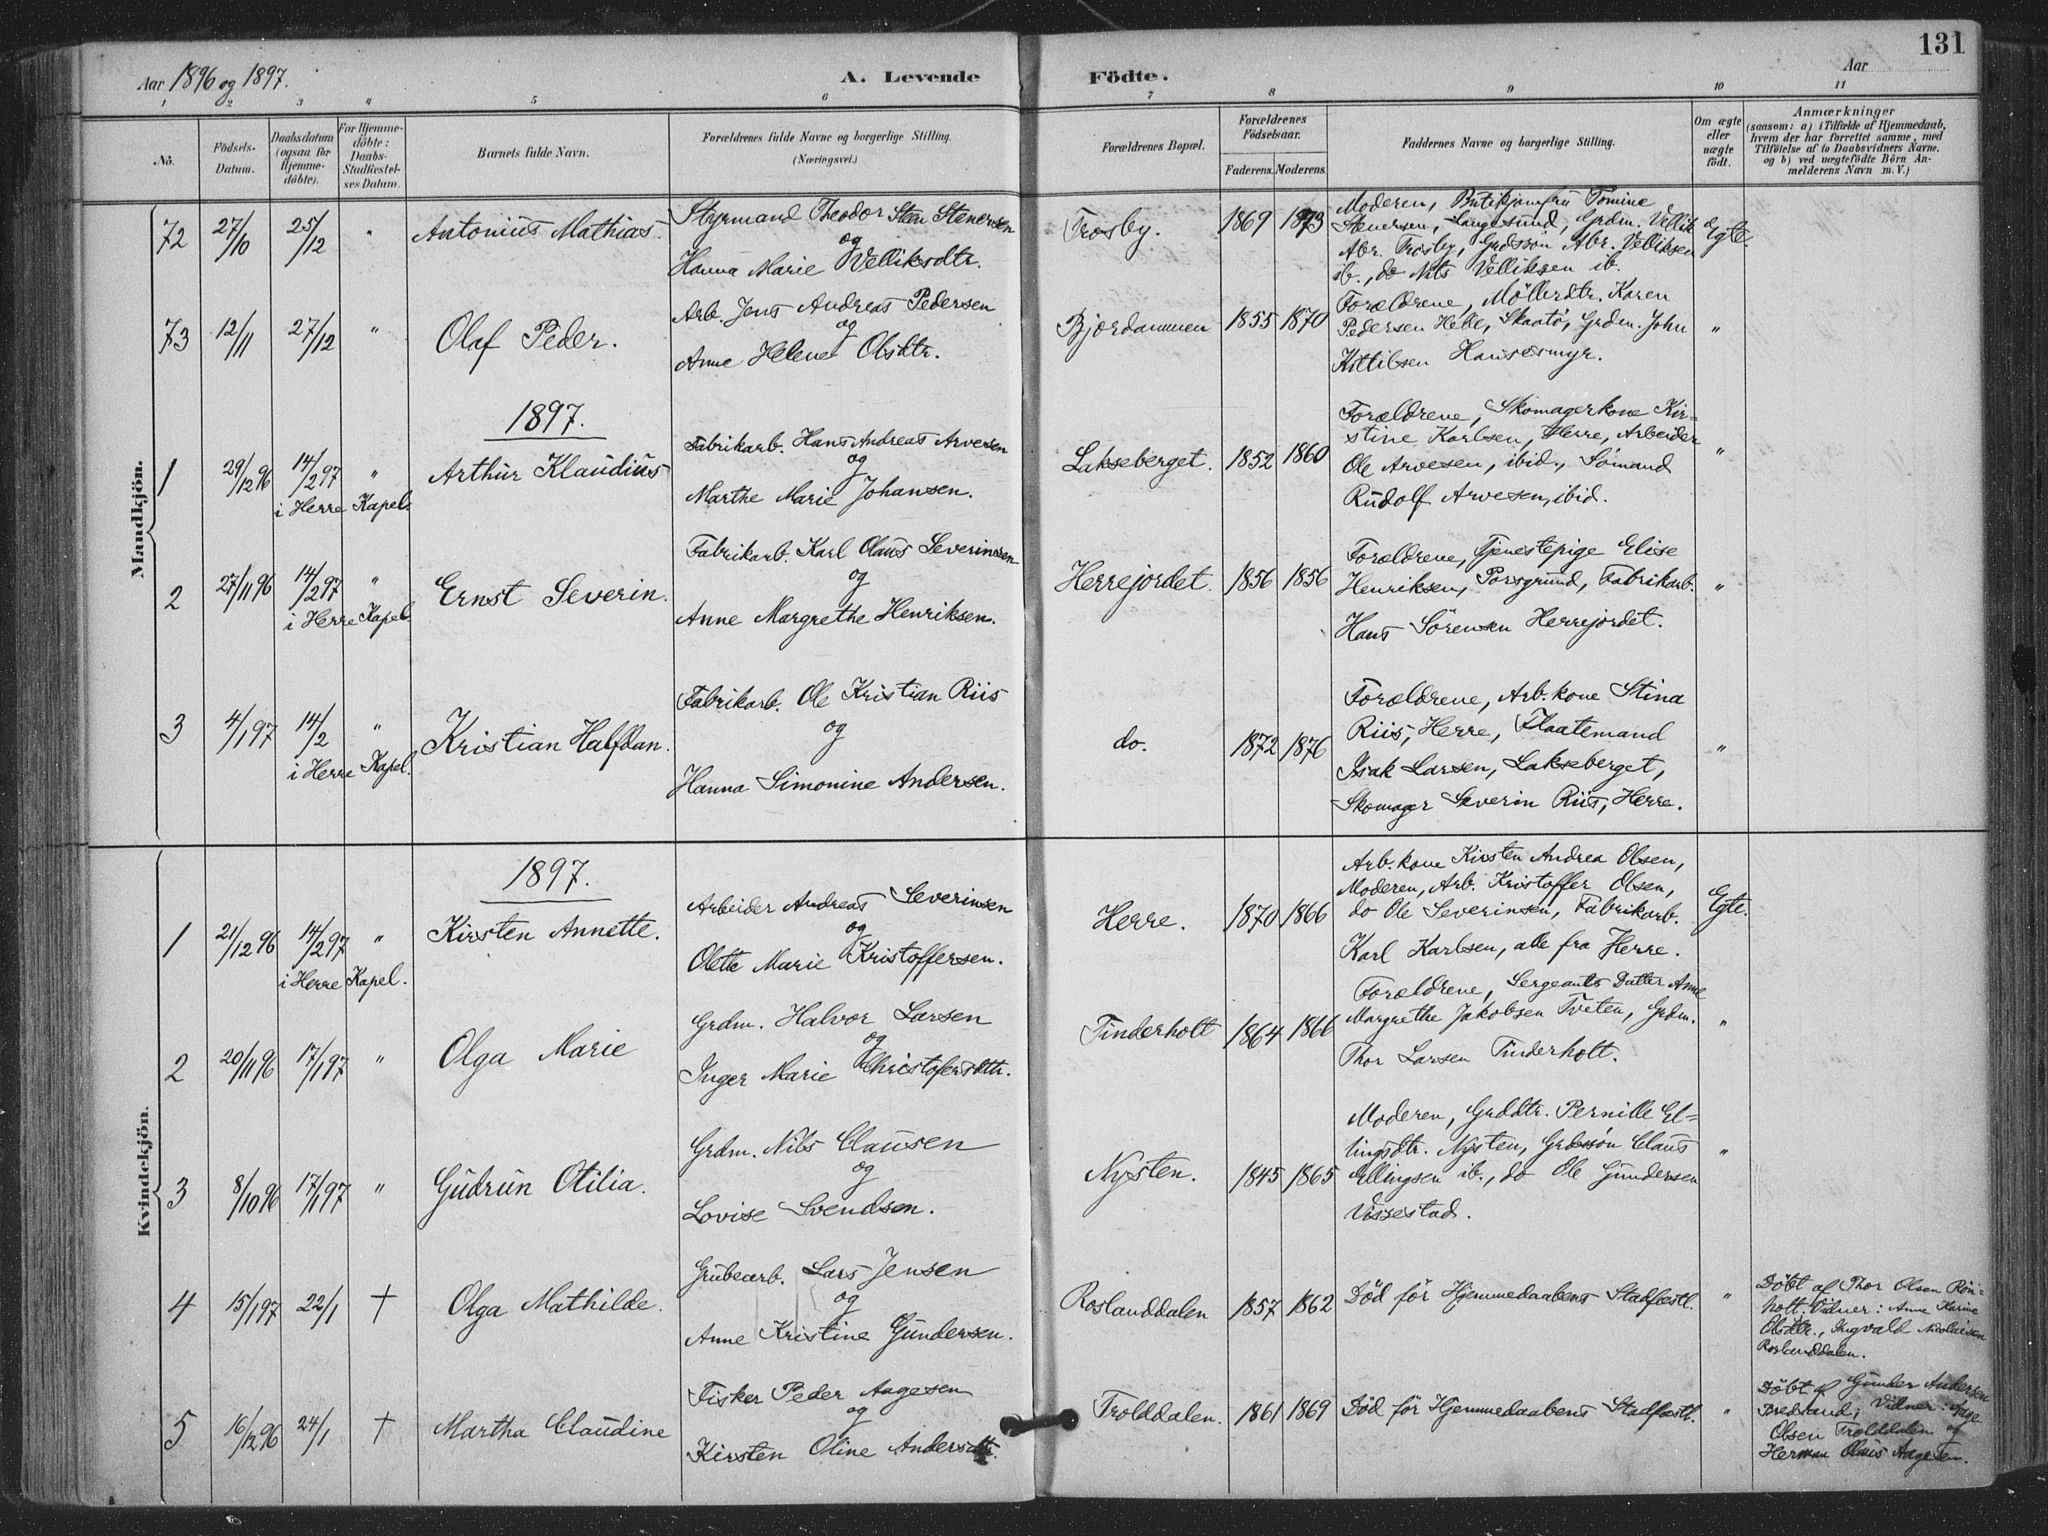 131
Aar 1896 og 1897.
A. Levende Födte.
Aar
1 2 3 " 5 6 7 8 9 10 11
No.
Födsels-
Datum.
Daabsdatum
(ogsaa for
Hjemme-
döbte).
For Hjemme-
döbte:
Daabs-
Stadfæstel-
ses Datum.
Barnets fulde Navn.
Forældrenes fulde Navne og borgerlige Stilling.
(Næringsvei.)
Forældrenes Bopæl.
Forældrenes
Födselsaar.
Faderens. Moderens.
Faddernes Navne og borgerlige Stilling.
Om ægte
eller
uægte
födt.
Anmærkninger
(saasom: a) i Tilfælde af Hjemmedaab,
hvem der har forrettet samme, med
Tilföielse af to Daabsvidners Navne,
og b) ved uægtefödte Börn An-
melderens Navn m. V.)
Mandkjön.
72 27/10 25/12 " Antonius Mathias.
Styrmand Theodor Sten Stenersen
og
Hanna Marie Velliksdtr.
Trosby. 1869 1873
Moderen, Butikjomfru Tomine
Stenersen, Langesund, Grdm. Vellik
Abr. Trosby, Grdssøn Abr. Velliksen
ib., do Nils Velliksen ib.
Egte
73 12/11 27/12 " Olaf Peder.
Arb. Jens Andreas Pedersen
og
Anne Helene Olsdtr.
Bjordammen 1855 1870
Forældrene, Möllerdtr. Karen
Pedersen Helle, Skaatö, Grdm. John
Kittilsen Hansesmyr.
"
1897.
1 29/12 96 14/2 97 " Arthur Klaudius
i Herre Kapel.
Fabrikarb. Hans Andreas Arvesen
og
Marthe Marie Johansen.
Lakseberget. 1852 1860
Forældrene, Skomagerkone Kir=
stine Karlsen, Herre, Arbeider
Ole Arvesen, ibid., Sömand
Rudolf Arvesen, ibid.
"
2 27/11 96 14/2 97 " Ernst Severin.
i Herre Kapel.
Fabrikarb. Karl Olaus Severinsen
og
Anne Margrethe Henriksen.
Herrejordet. 1856 1856
Forældrene, Tjenestepige Elise
Henriksen, Porsgrund, Fabrikarb.
Hans Sörensen Herrejordet.
"
3 4/1 97 14/2 " Kristian Halfdan.
i Herre Kapel.
Fabrikarb. Ole Kristian Riis
og
Hanna Simonine Andersen.
do. 1872 1876
Forældrene, Arb. kone Stina
Riis, Herre, Flaatemand
Isak Larsen, Lakseberget,
Skomager Severin Riis, Herre.
"
Kvindekjön.
1897.
1 21/12 96 14/2 97 " Kirsten Annette.
i Herre Kapel.
Arbeider Andreas Severinsen
og
Olette Marie Kristoffersen.
Herre. 1870 1866
Arb. kone Kirsten Andrea Olsen,
Moderen, Arb. Kristoffer Olsen,
do Ole Severinsen, Fabrikarb.
Karl Karlsen, alle fra Herre.
Egte.
2 20/11 96 17/1 97 " Olga Marie
Grdm. Halvor Larsen
og
Inger Marie Christofersdtr.
Tinderholt 1864 1866
Forældrene, Sergeants Datter Anne
Margrethe Jakobsen Tveten, Grdm.
Thor Larsen Tinderholt.
"
3 8/10 96 17/1 97 " Gudrun Otilia.
Grdm. Nils Clausen
og
Lovise Svendsen.
Nysten. 1845 1865
Moderen, Grddtr. Pernille El=
lingsdtr. Nysten, Grdssøn Claus
Ellingsen ib., do Ole Gundersen
Vissestad.
"
4 15/1 97 22/1 † Olga Mathilde.
Grubearb. Lars Jensen
og
Anne Kristine Gundersen.
Roslanddalen 1857 1862
Död för Hjemmedaabens Stadfæstl.
"
Döbt af Thor Olsen Rön-
holt. Vidner: Anne Karine
Olsdtr., Ingvald Nicolaisen
Roslanddalen.
5 16/12 96 24/1 † Martha Claudine
Fisker Peder Aagesen
og
Kirsten Oline Andersdtr.
Trolddalen. 1861 1869
Död för Hjemmedaabens Stadfæstl.
"
Döbt af Gunder Andersen
Bredsand; Vidner: Aage
Olsen Trolddalen og
Herman Olaus Aagesen.